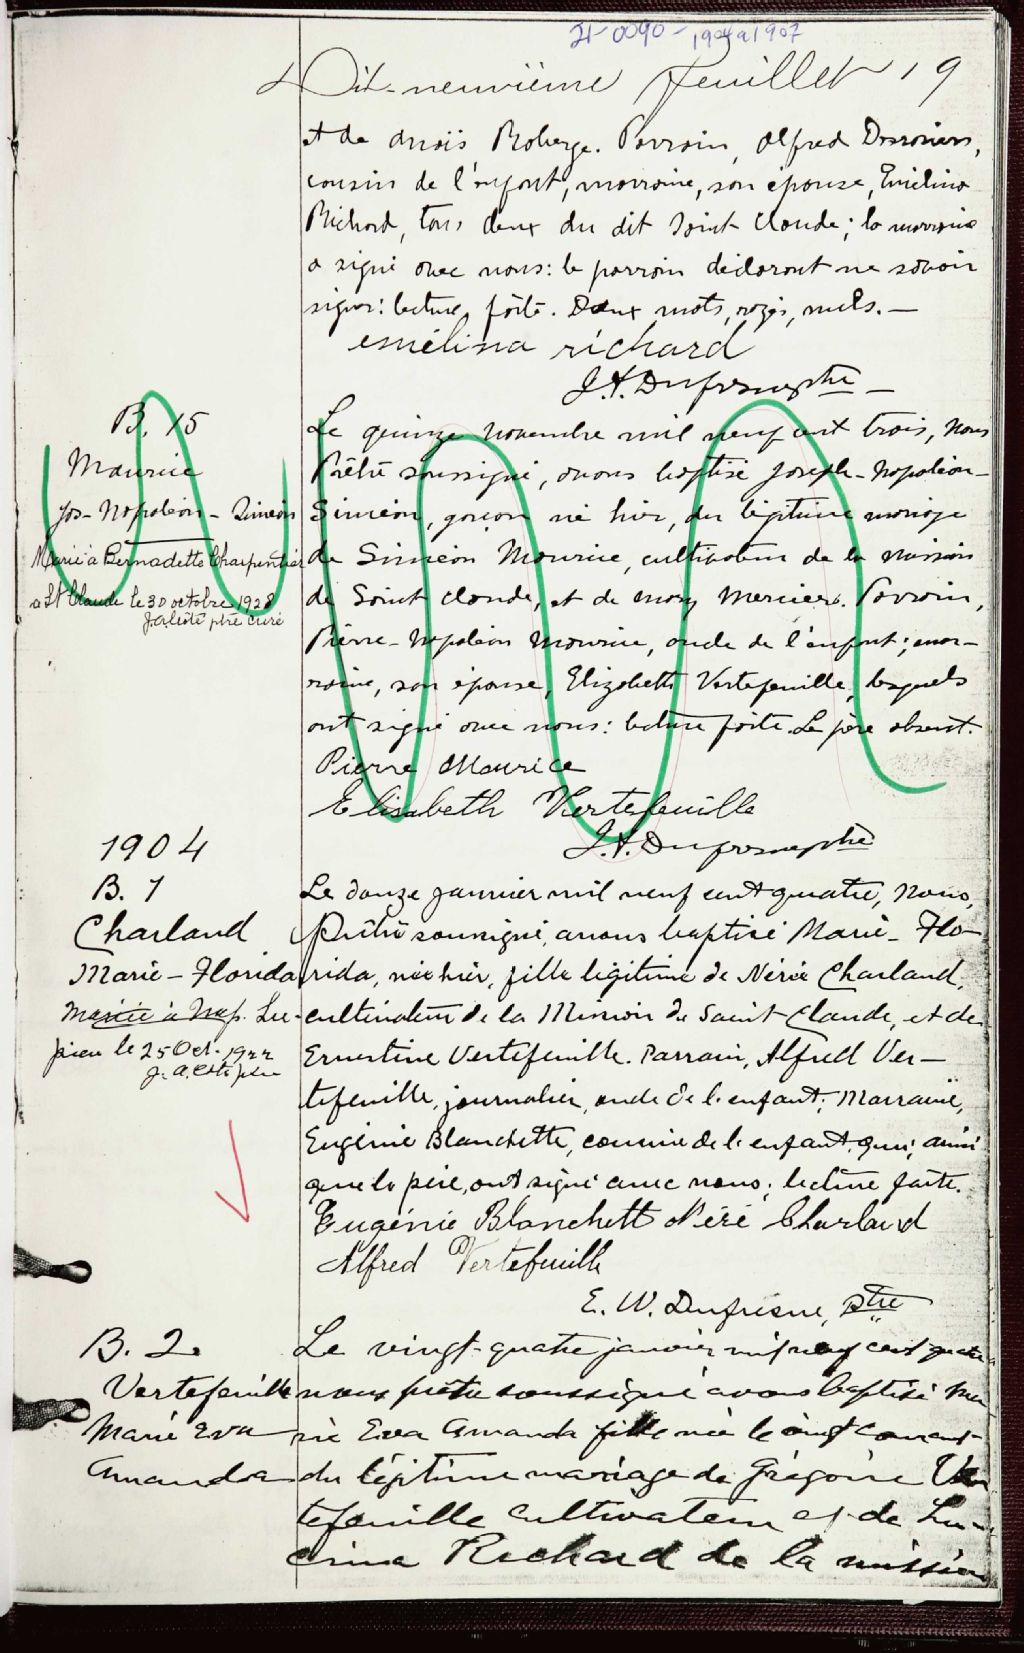 21-0090- 1904 a 1907
Dix-neuvième feuillet 19
et de Anaïs Roberge. Parrain, Alfred Desrosiers,
cousin de l'enfant, marraine, son épouse, Emélina
Richard, tous deux du dit Saint Claude; la marraine
a signé avec nous: le parrain déclarant ne savoir
signer: lecture faite. Deux mots rayés, nuls. —
emélina richard
J.A. Dufresne ptre —
B. 15
Maurice
Jos-Napoléon-Siméon
Marié à Bernadette Charpentier
à St Claude le 30 octobre 1928
ptre curé
Le quinze novembre mil neuf cent trois, Nous
Prêtre soussigné, avons baptisé Joseph-Napoléon-
Siméon, garçon né hier, du légitime mariage
de Siméon Maurice, cultivateur de la mission
de Saint Claude, et de Mary Mercier. Parrain,
Pierre-Napoléon Maurice, oncle de l'enfant; mar-
raine, son épouse, Elizabeth Vertefeuille, lesquels
ont signé avec nous: lecture faite. Le père absent.
Pierre Maurice
Elisabeth Vertefeuille
J.A. Dufresne ptre
1904
B. 1
Charland
Marie-Florida
Mariée à Nap. Lu-
pien le 25 Oct. 1922
J. A. Côté ptre
Le douze janvier mil neuf cent quatre, Nous,
Prêtre soussigné, avons baptisé Marie-Flo-
rida, née hier, fille légitime de Nérée Charland,
cultivateur de la Mission de Saint Claude, et de
Ernestine Vertefeuille. Parrain, Alfred Ver-
tefeuille, journalier, oncle de l'enfant; Marraine,
Eugénie Blanchette, cousine de l'enfant, qui, ainsi
que le père, ont signé avec nous; lecture faite.
Eugénie Blanchett Néré Charland
Alfred Vertefeuille
E. W. Dufresne, Ptre
B. 2
Vertefeuille
Marie Eva
Amanda
Le vingt-quatre janvier mil neuf cent quatre
nous prêtre soussigné avons baptisé Ma-
rie Eva Amanda fille née le vingt courant
du légitime mariage de Grégoire Ver
tefeuille cultivateur et de Lu-
cina Richard de la mission